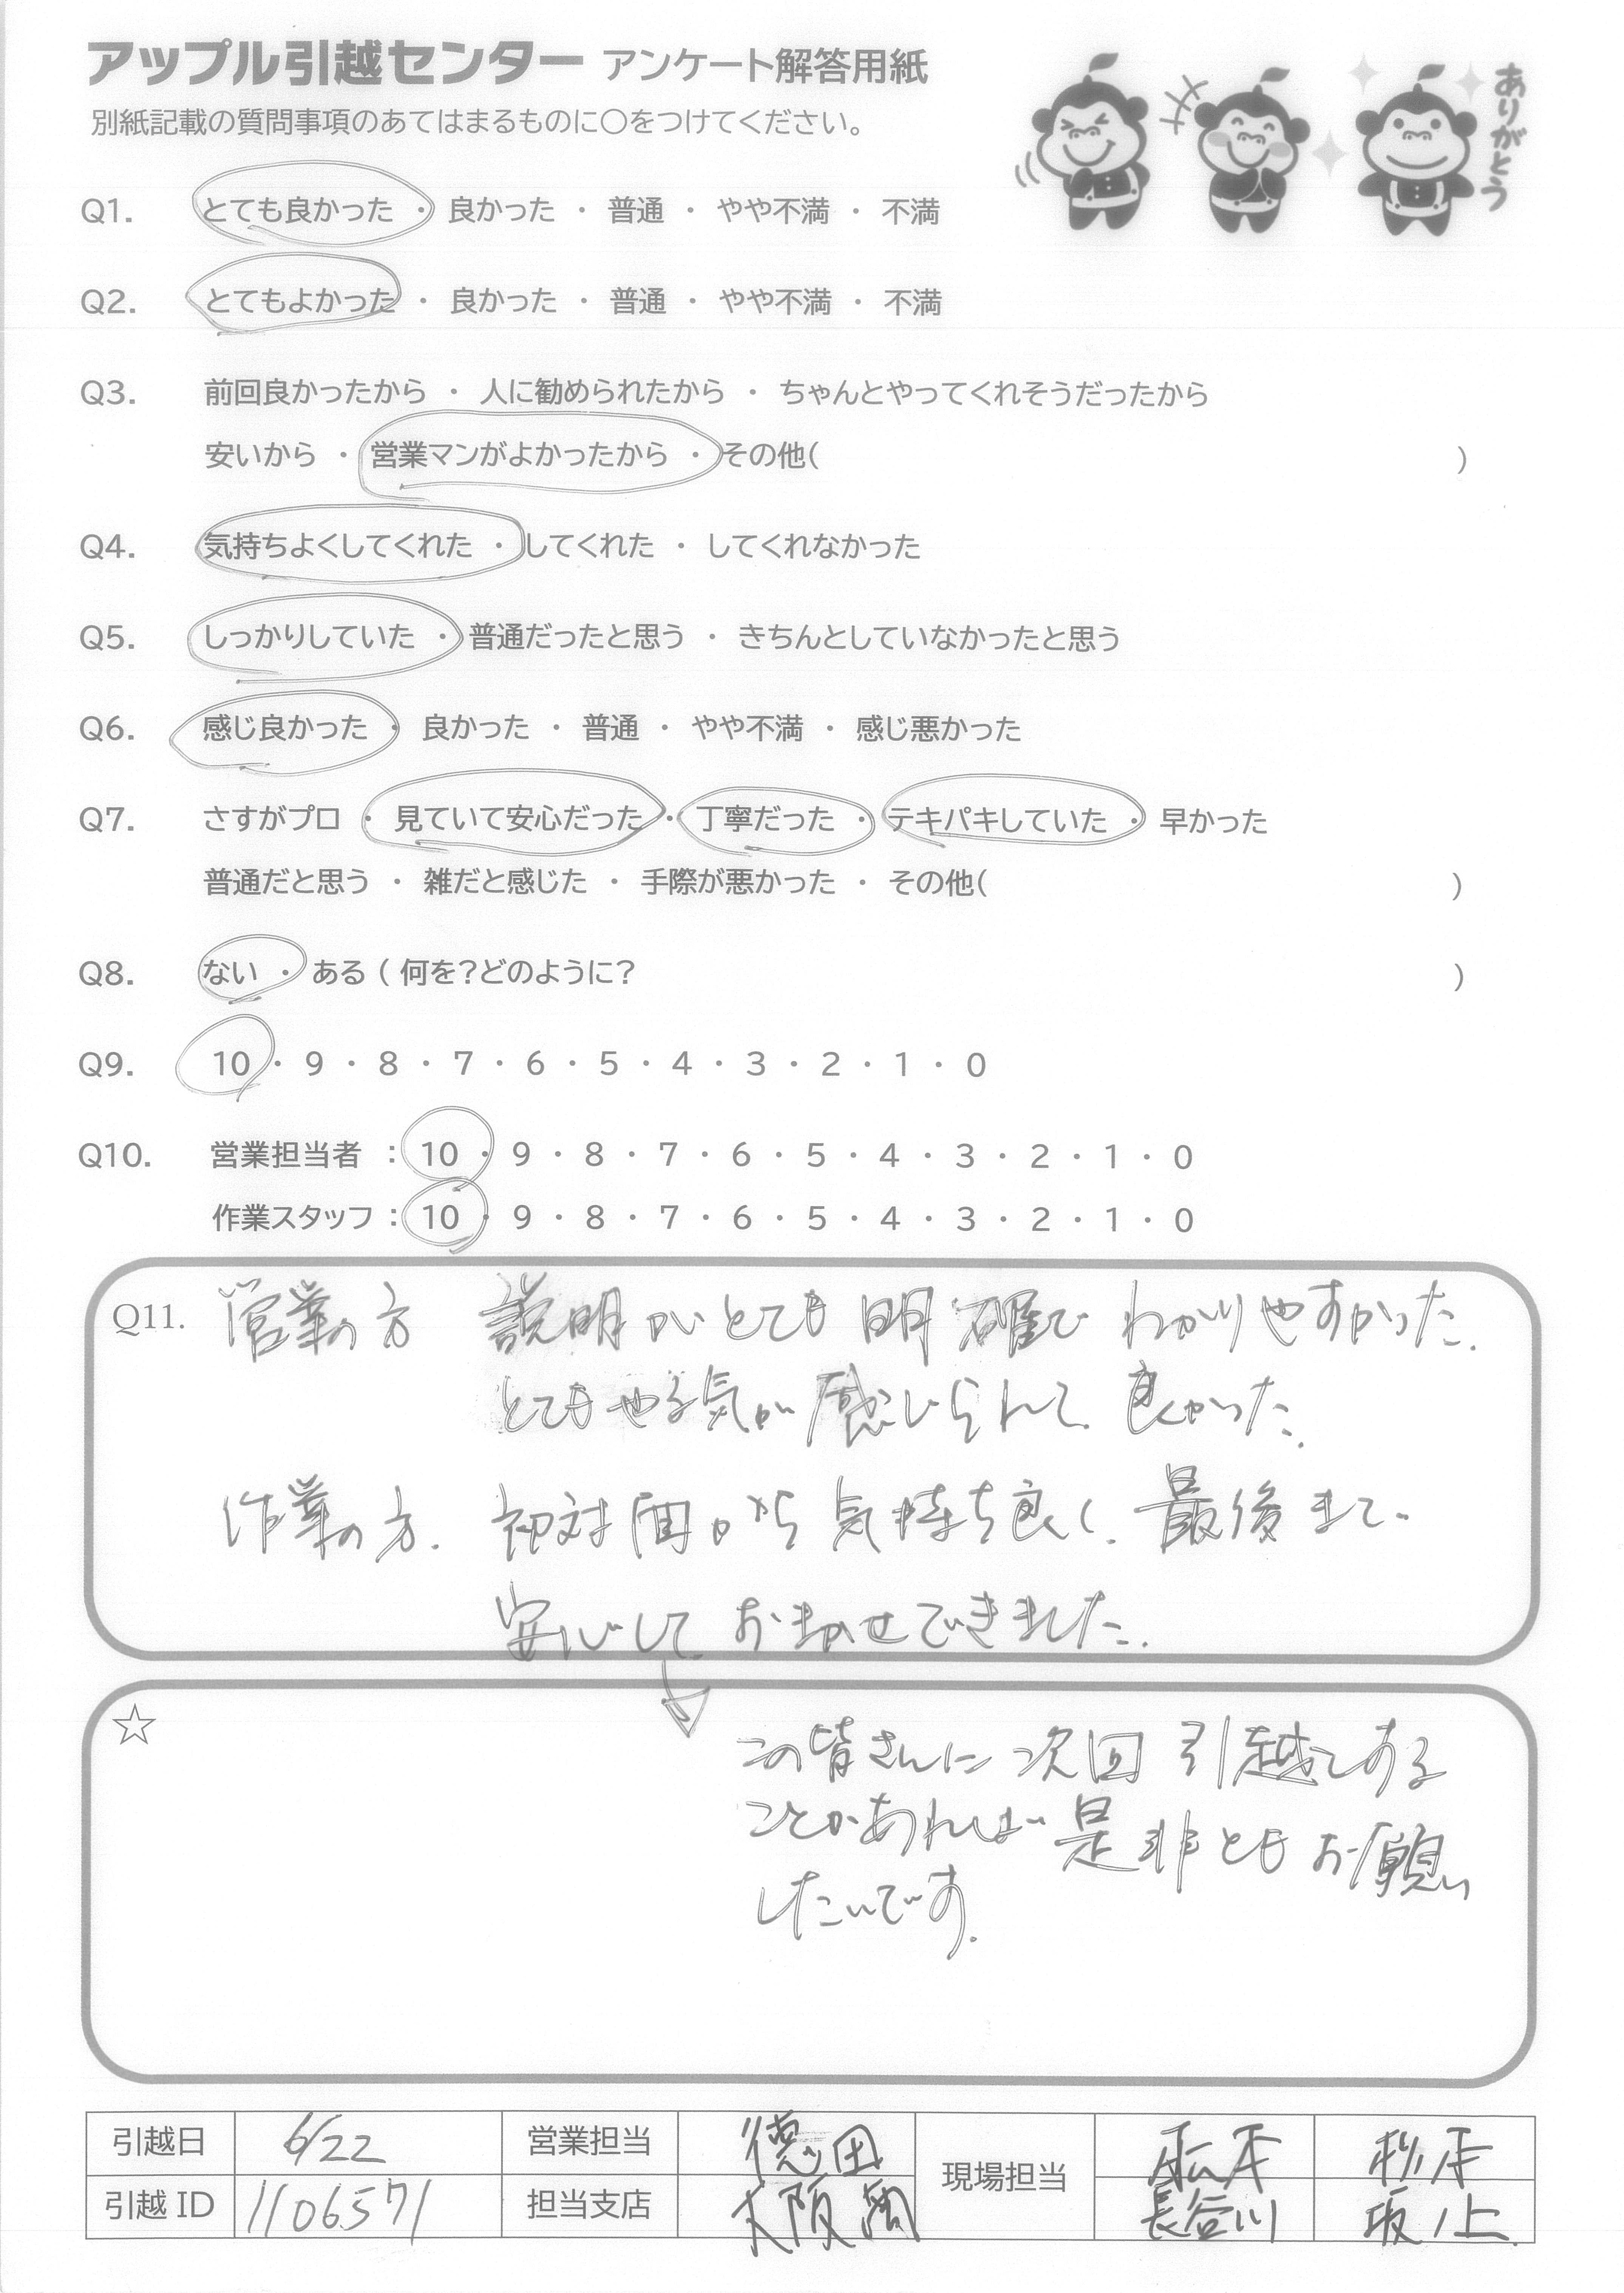 アップル引越センター アンケート解答用紙
別紙記載の質問事項のあてはまるものに○をつけてください。
ありがとう
Q1. とても良かった ・ 良かった ・ 普通 ・ やや不満 ・ 不満
Q2. とてもよかった ・ 良かった ・ 普通 ・ やや不満 ・ 不満
Q3. 前回良かったから ・ 人に勧められたから ・ ちゃんとやってくれそうだったから
安いから ・ 営業マンがよかったから ・ その他( )
Q4. 気持ちよくしてくれた ・ してくれた ・ してくれなかった
Q5. しっかりしていた ・ 普通だったと思う ・ きちんとしていなかったと思う
Q6. 感じ良かった ・ 良かった ・ 普通 ・ やや不満 ・ 感じ悪かった
Q7. さすがプロ ・ 見ていて安心だった ・ 丁寧だった ・ テキパキしていた ・ 早かった
普通だと思う ・ 雑だと感じた ・ 手際が悪かった ・ その他( )
Q8. ない ・ ある ( 何を?どのように? )
Q9. 10 ・ 9 ・ 8 ・ 7 ・ 6 ・ 5 ・ 4 ・ 3 ・ 2 ・ 1 ・ 0
Q10. 営業担当者 : 10 ・ 9 ・ 8 ・ 7 ・ 6 ・ 5 ・ 4 ・ 3 ・ 2 ・ 1 ・ 0
作業スタッフ : 10 ・ 9 ・ 8 ・ 7 ・ 6 ・ 5 ・ 4 ・ 3 ・ 2 ・ 1 ・ 0
Q11. 営業の方 説明がとても明確でわかりやすかった.
とてもやる気が感じられて良かった.
作業の方. 初対面から気持ち良く. 最後まで
安心して おまかせできました.
☆ この皆さんに次回引越しする
ことがあれば是非ともお願い
したいです.
引越日 6/22 営業担当 徳田 現場担当 松本 杉本
引越 ID 1106571 担当支店 大阪 長谷川 坂ノ上